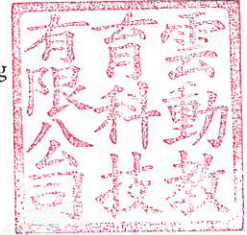 雲動教
育科技
有限公司
g